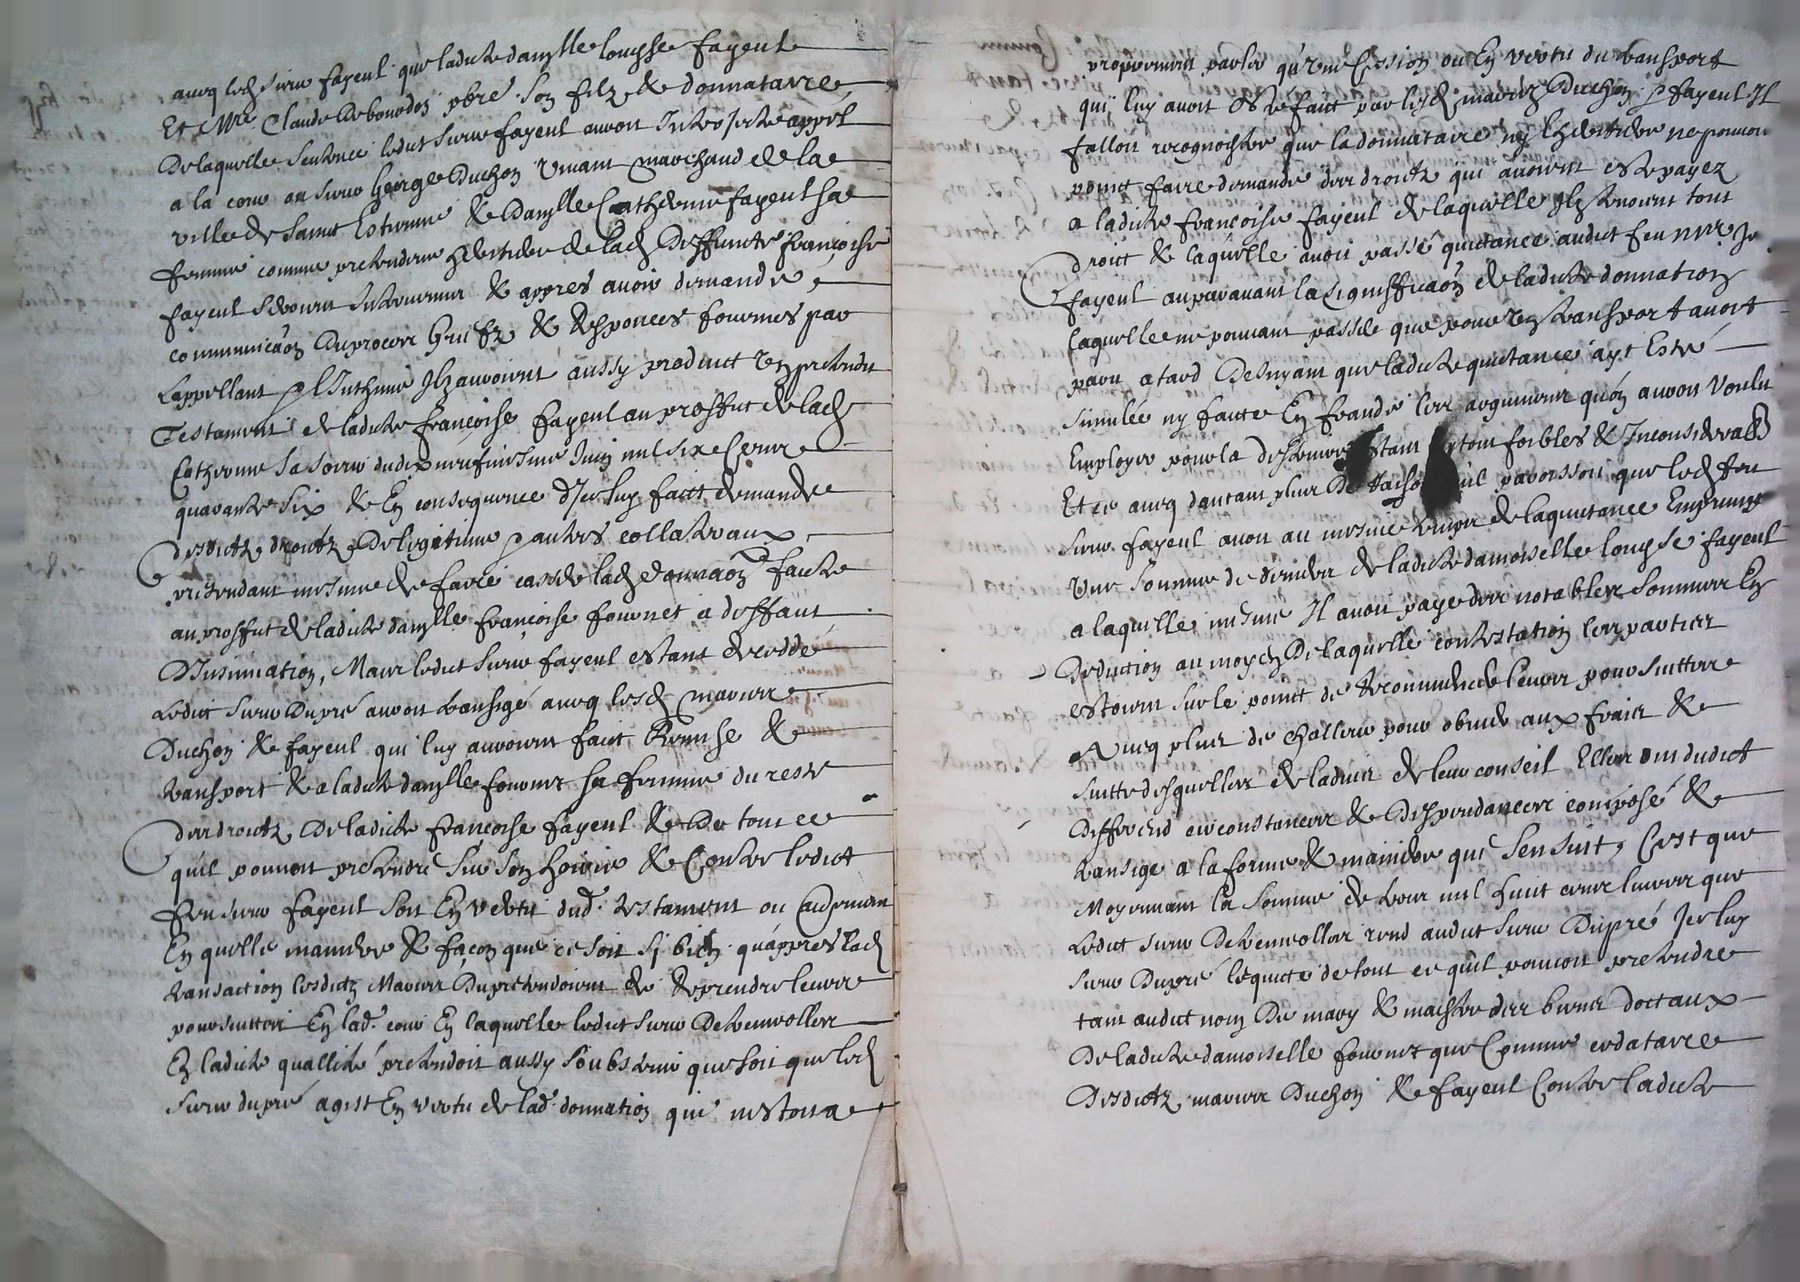 avecq led sieur fayeul que ladicte damlle louyse fayeul
Et Mre Claude de bourdon pbre son filz & donnataire
De laquelle sentence ledict sieur fayeul auroit Interjecté appel
a la cour ou sieur George Duchon vivant marchand de la
ville de Saint Estienne & damlle Catherine fayeul sa
femme comme pretendeue heritiere de lad Deffuncte francoise
fayeul seroient Intervenus & appres avoir demandé
communicaon du proces Griefz & Responces fournies par
Lappellant & l'Inthimé Ilz auroient aussy produict un pretendu
Testament de ladicte francoise fayeul au proffict de lade
Catherine sa soeur du dix neufviesme Juin mil six Centz
quarante six & En consequence d'Icelluy faict demande
desdictz droictz de legitime & autres collateraux
pretendant mesme de faire casser lad donnaon faicte
au proffict de ladicte damlle francoise fournet a deffaut
D'Insinuation, Mais ledict sieur fayeul estant decedde
Ledict sieur Dupré auroit transigé avecq lesd mariez
Duchon & fayeul qui luy auroient faict Remise &
transport & a ladicte damlle fournet sa femme du reste
des droictz De ladicte francoise fayeul & De tout ce
qu'il pouvoit pretendre sur son hoirie & Contre ledict
feu sieur fayeul soit En vertu dud. testament ou autrement
En quelle maniere & facon que ce soit si bien qu'appres lad
transaction lesdictz Mariez Dupré tendoient de Reprendre leurs
poursuittes En lad. cour En laquelle ledict sieur De
En ladicte quallité pretendoit aussy soubstenir que soit que led
sieur dupré agist En vertu de lad. donnation qui n'estoit a
proprement parler qu'une Cession ou En vertu du transport
qui luy avoit esté faict par lesd mariez Duchon & fayeul Il
falloit recognoistre que la donnataire ny l'heritiere ne pouvoit
point faire demande des droictz qui avoient esté payez
a ladicte francoise fayeul de laquelle Ilz tenoient tout
droict & laquelle avoit passé quictance audict feu
fayeul auparavant la signifficaon de ladicte donnation
laquelle ne pouvant passer que pour un transport avoit
paru a tard Desnyant que ladicte quictance ayt Esté
simulée ny faicte En fraude les argumens qu'on auroit voulu
Employer pour la destruire estant tous foibles &
Et ce avecq dautant plus De raison qu'il paroissoit que led feu
sieur fayeul avoit au mesme temps de la quictance Emprunté
Une somme de deniers de ladicte damoiselle louyse fayeul
a laquelle mesme Il avoit payé des notables sommes En
Deduction au moyen De laquelle contestation les parties
estoient sur le point de Recommencer leurs poursuittes
Avecq plus de challeur pour obvier aux fraiz &
suitte desquelles de ladvis de leur conseil Elles ont dudict
Differend circonstances & Despendances composé &
transigé a la forme & maniere qui sensuit, C'est que
Moyennant la somme de trois mil huit centz livres que
Ledict sieur De rend audict sieur Dupré Icelluy
sieur Dupré lequitte de tout ce qu'il pouvoit pretendre
tant audict nom De mary & maistre des biens dottaux
De ladicte damoiselle fournet que Comme cedataire
Desdictz mariez Duchon & fayeul Contre ladicte